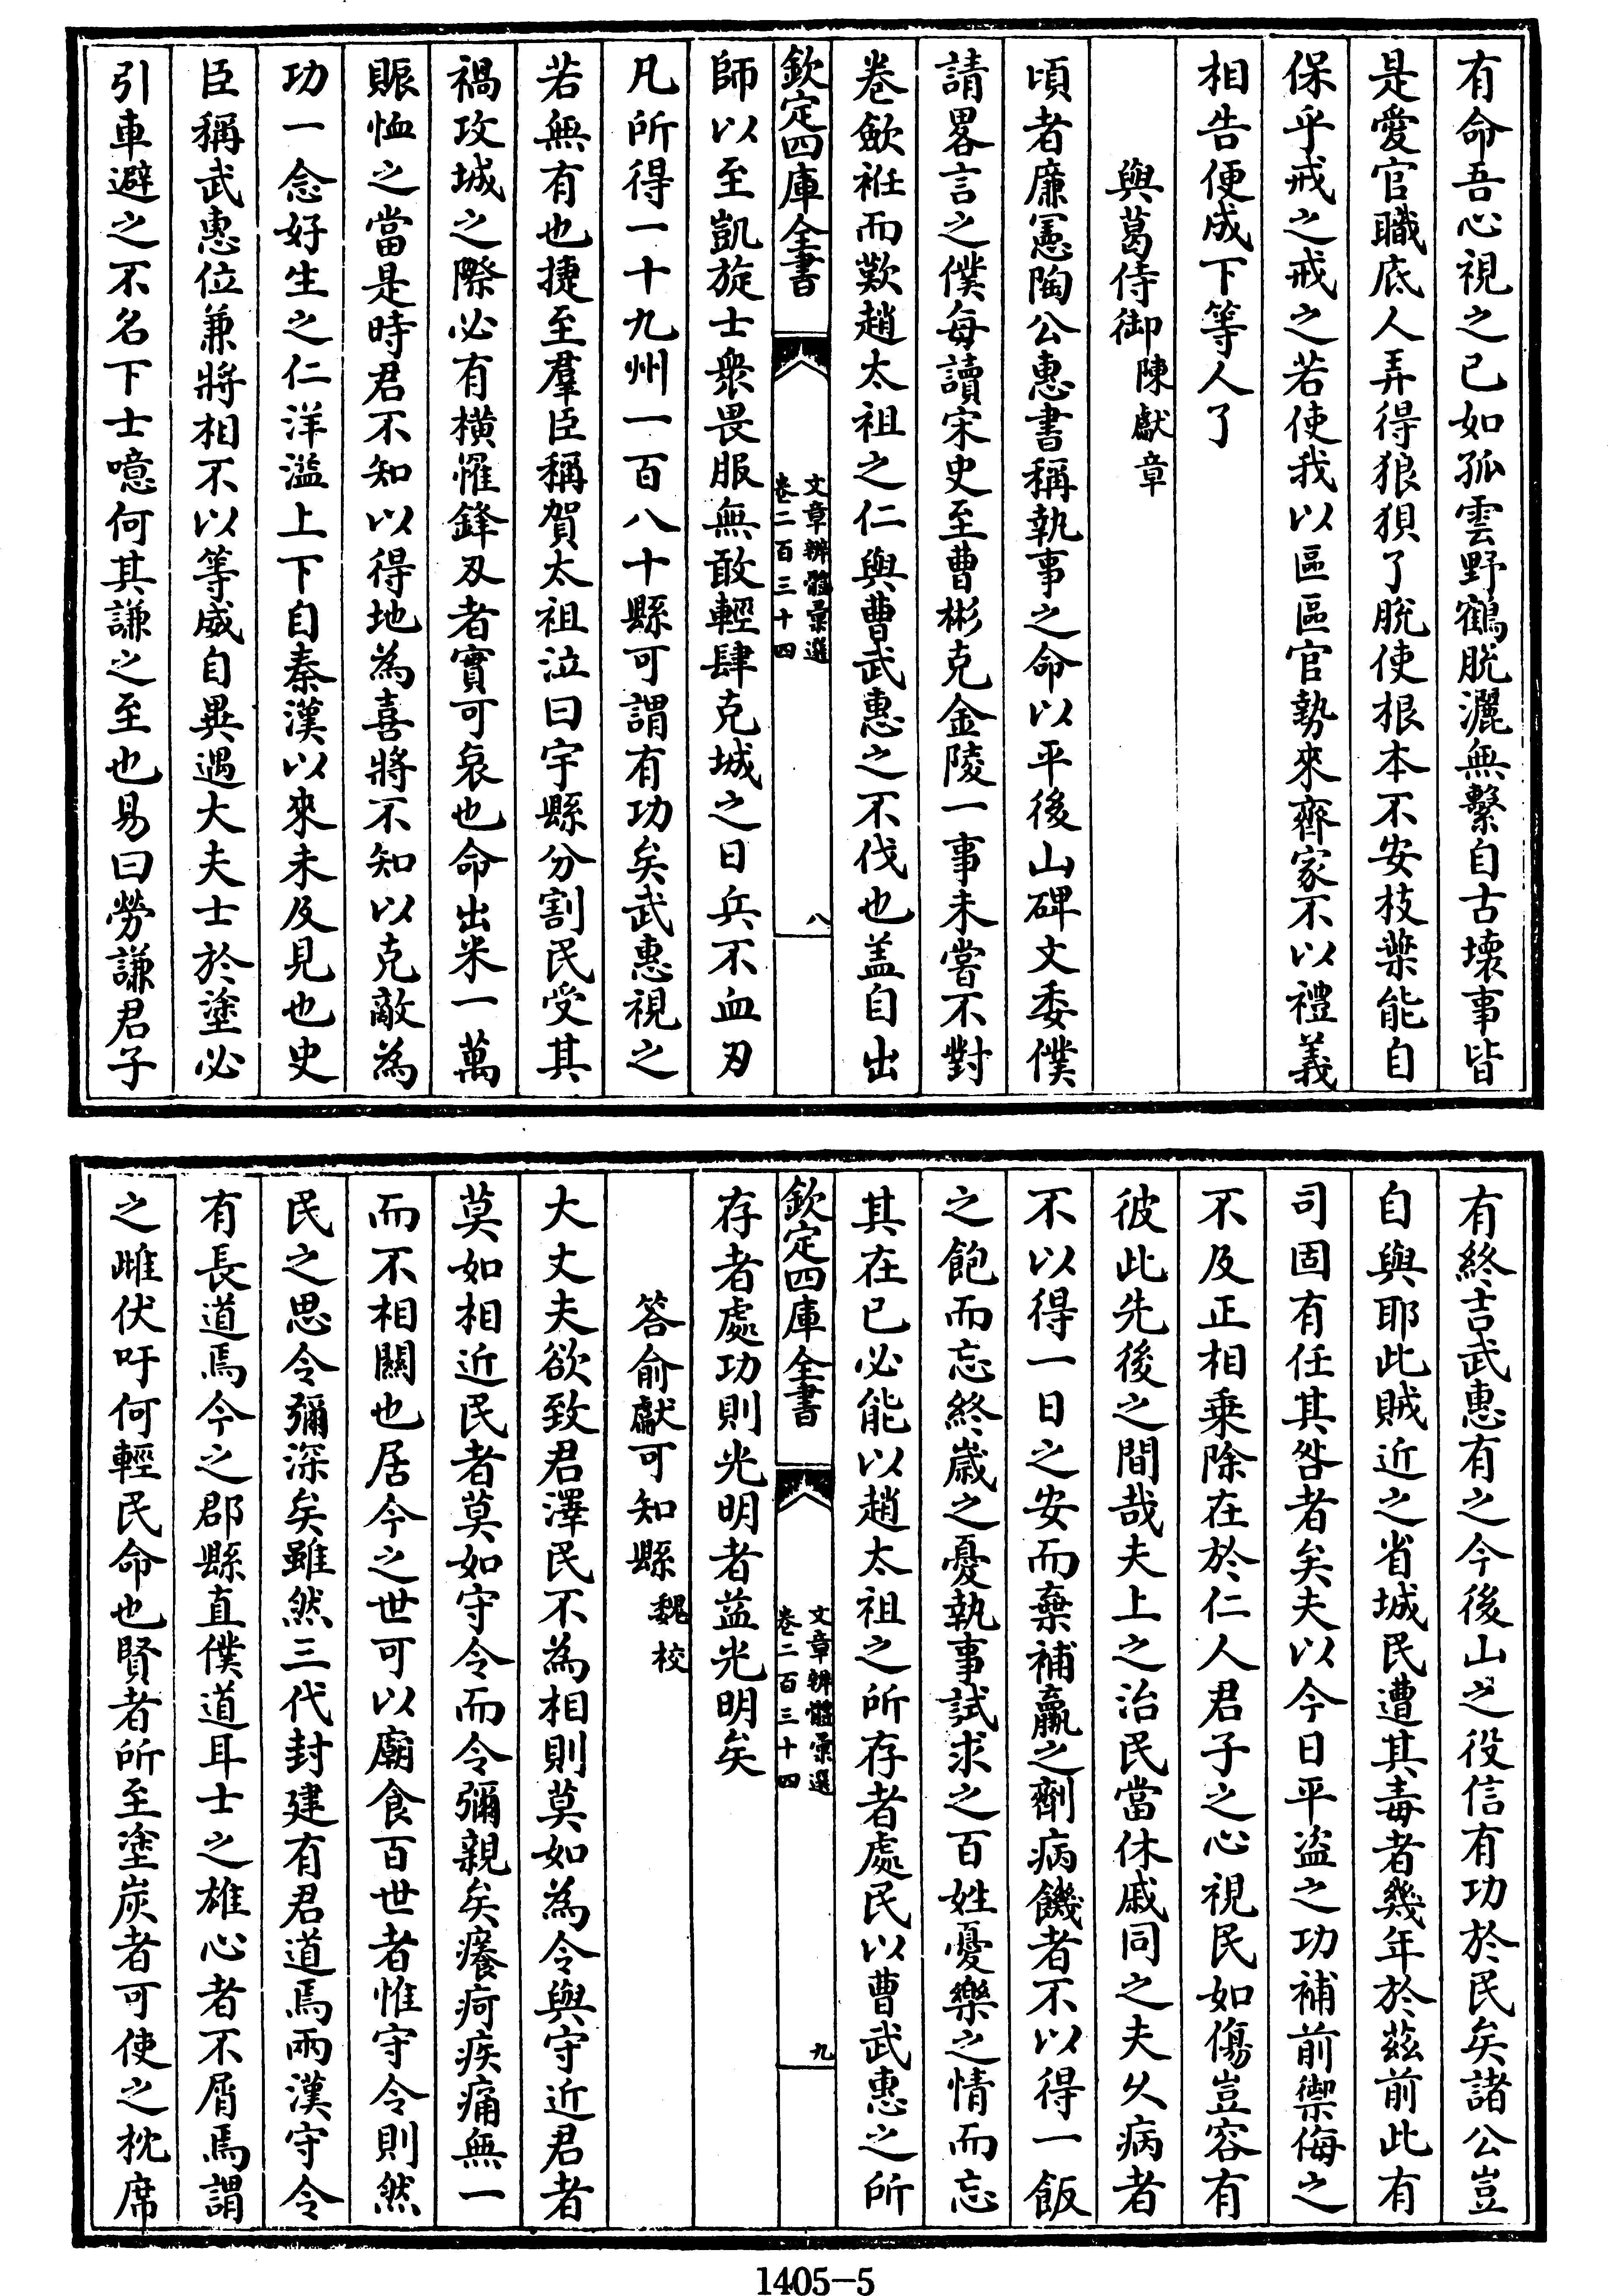 有命吾心視之已如孤雲野鶴脫灑無繫自古壞事皆
是愛官職底人弄得狼狽了脫使根本不安枝葉能自
保乎戒之戒之若使我以區區官勢來齊家不以禮義
相告便成下等人了
與葛侍御陳獻章
頃者廉憲陶公惠書稱執事之命以平後山碑文委僕
請畧言之僕每讀宋史至曹彬克金陵一事未嘗不對
卷歛袵而歎趙太祖之仁與曹武惠之不伐也盖自出
欽定四庫全書
文章辨體彙選
卷二百三十四
八
師以至凱旋士衆畏服無敢輕肆克城之日兵不血刃
凡所得一十九州一百八十縣可謂有功矣武惠視之
若無有也捷至羣臣稱賀太祖泣曰宇縣分割民受其
禍攻城之際必有橫罹鋒刃者實可哀也命出米一萬
賑恤之當是時君不知以得地為喜將不知以克敵為
功一念好生之仁洋溢上下自秦漢以來未及見也史
臣稱武惠位兼將相不以等威自異遇大夫士於塗必
引車避之不名下士噫何其謙之至也易曰勞謙君子
有終吉武惠有之今後山之役信有功於民矣諸公豈
自與耶此賊近之省城民遭其毒者幾年於茲前此有
司固有任其咎者矣夫以今日平盜之功補前禦侮之
不及正相乗除在於仁人君子之心視民如傷豈容有
彼此先後之間哉夫上之治民當休戚同之夫乆病者
不以得一日之安而棄補羸之劑病饑者不以得一飯
之飽而忘終歲之憂執事試求之百姓憂樂之情而忘
其在已必能以趙太祖之所存者處民以曹武惠之所
欽定四庫全書
文章辨體彙選
卷二百三十四
九
存者處功則光明者益光明矣
答俞獻可知縣魏校
大丈夫欲致君澤民不為相則莫如為令與守近君者
莫如相近民者莫如守令而令彌親矣癢疴疾痛無一
而不相關也居今之世可以廟食百世者惟守令則然
民之思令彌深矣雖然三代封建有君道焉兩漢守令
有長道焉今之郡縣直僕道耳士之雄心者不屑焉謂
之雌伏吁何輕民命也賢者所至塗炭者可使之枕席
1405-5